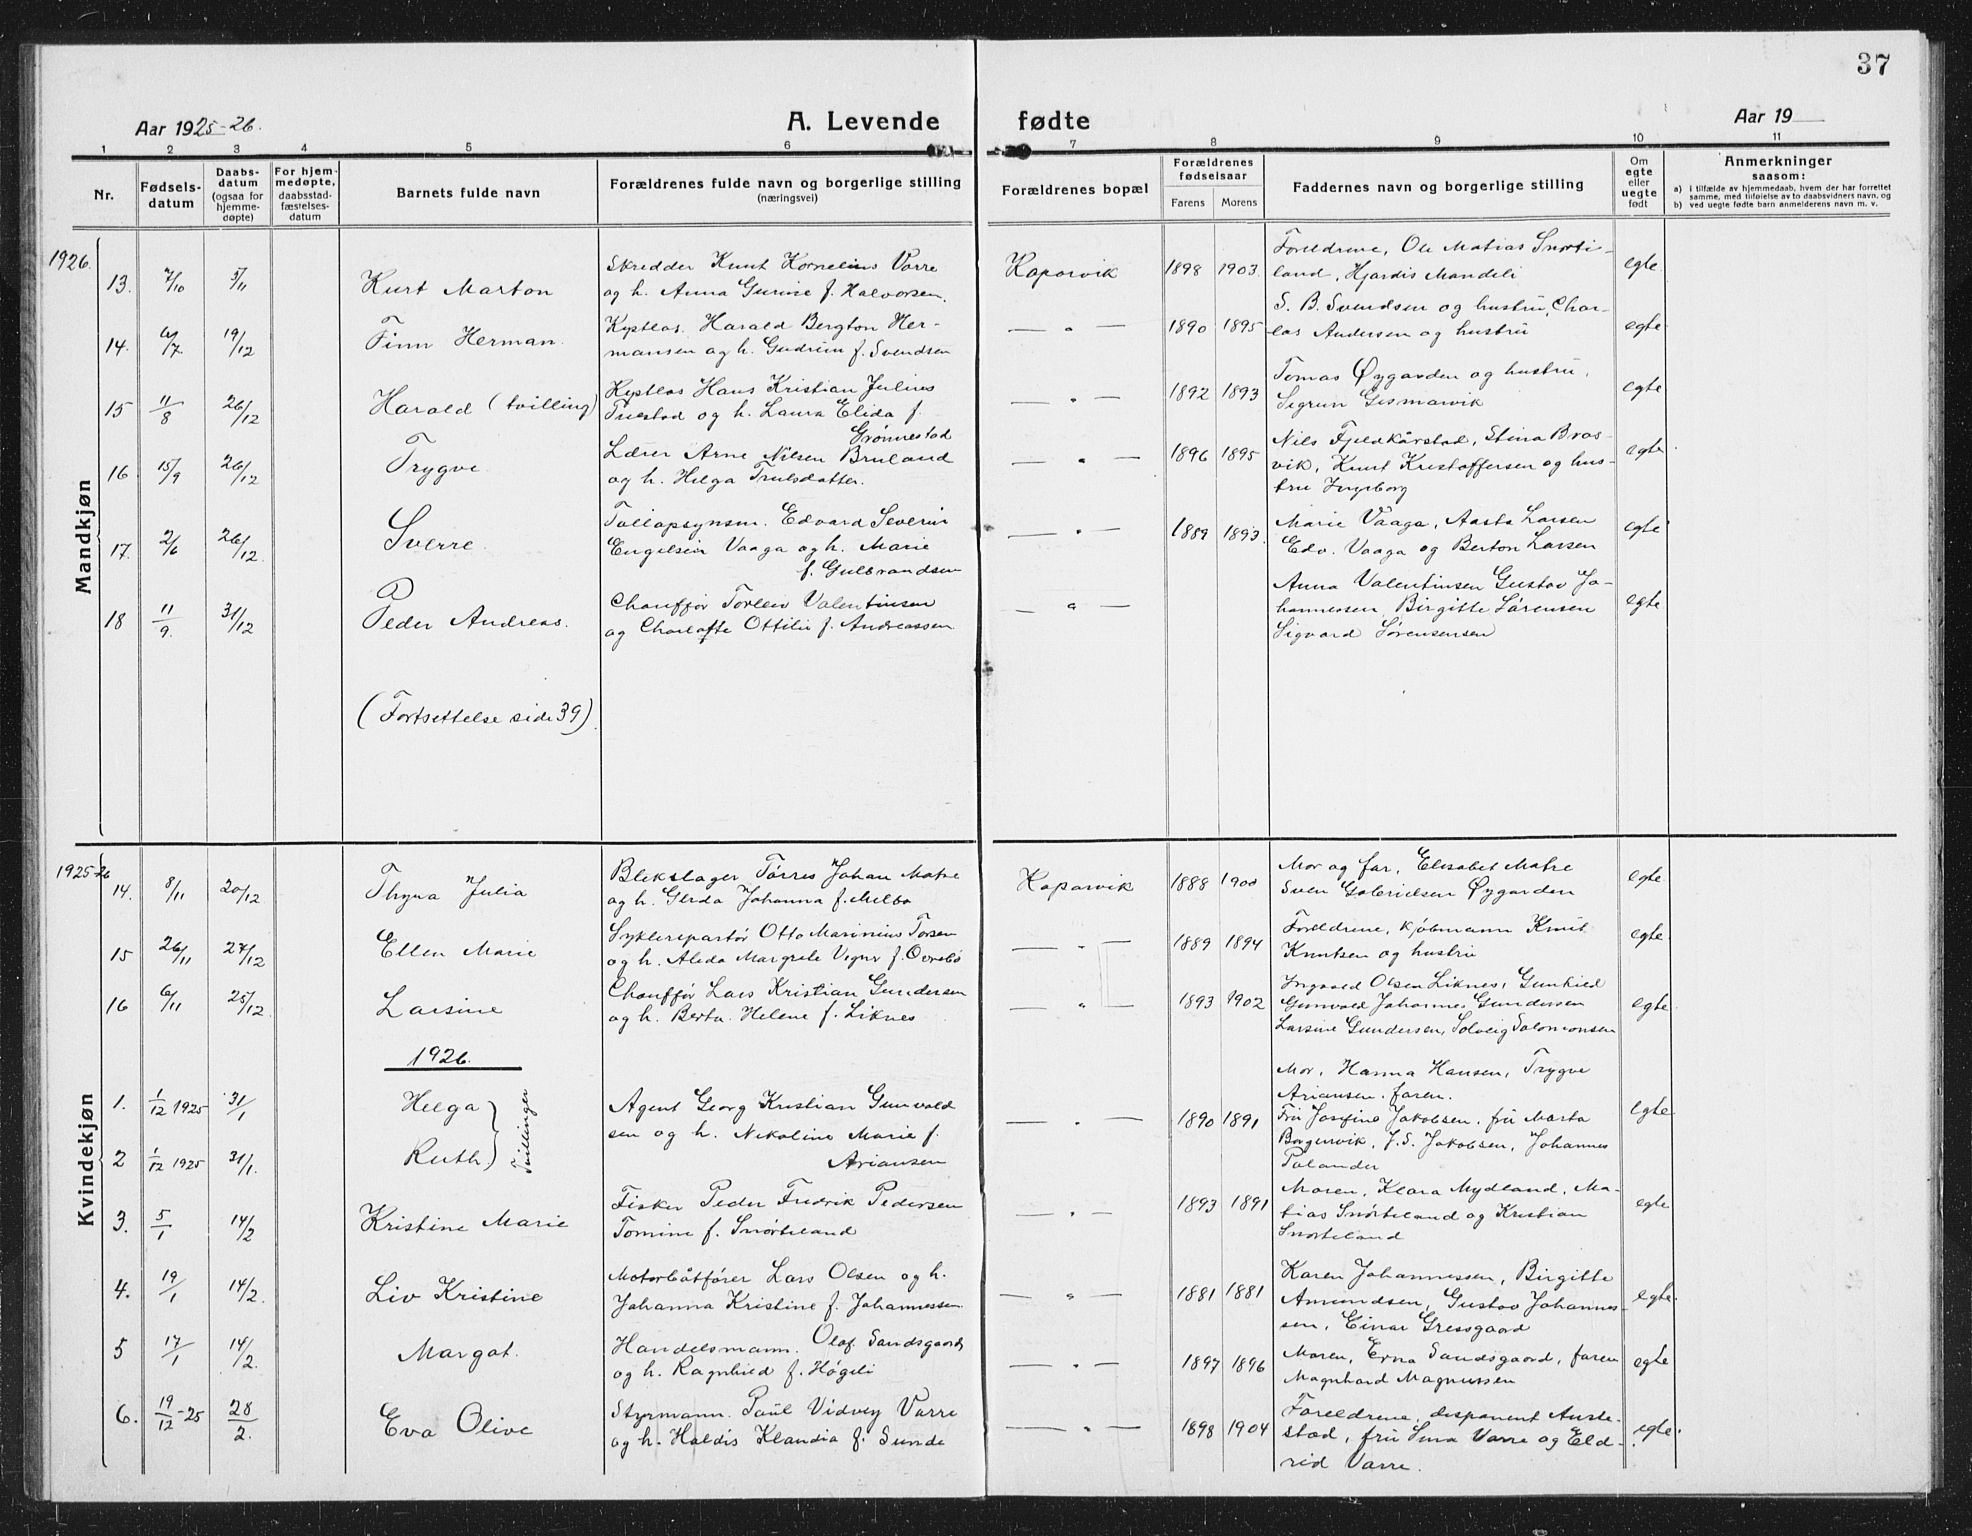 37
Aar 1925-26.
A. Levende fødte
Aar 19
1 2 3 4 5 6 7 8 9 10 11
Nr.
Fødsels-
datum
Daabs-
datum
(ogsaa for
hjemme-
døpte)
For hjem-
medøpte,
daabsstad-
fæstelses-
datum
Barnets fulde navn
Forældrenes fulde navn og borgerlige stilling
(næringsvei)
Forældrenes bopæl
Forældrenes
fødselsaar
Farens Morens
Faddernes navn og borgerlige stilling
Om
egte
eller
uegte
født
Anmerkninger
saasom:
a) i tilfælde av hjemmedaab, hvem der har forrettet
samme, med tilføielse av to daabsvidners navn, og
b) ved uegte fødte barn anmelderens navn m. v.
Mandkjøn
1926.
13. 7/10 5/11 Kurt Marton
Skredder Knut Kornelius Varre
og h. Anna Gurine f. Halvorsen.
Kopervik 1898 1903
Foreldrene, Ole Matias Snørte-
land, Hjørdis Mandeli
egte
14. 6/7. 19/12 Finn Herman.
Kystlos. Harald Bergton Her-
mansen og h. Gudrun f. Svendsen
— " — 1890 1895
S. B. Svendsen og hustru, Char-
les Andersen og hustru
egte
15 11/8 26/12 Harald (tvilling)
Kystlos Hans Kristian Julius
Tuestad og h. Laura Elida f.
Grønnestad
— " — 1892 1893
Tomas Øygarden og hustru,
Sigrun Gismarvik
egte
16. 15/9 26/12 Trygve
Lærer Arne Nilsen Bruland
og h. Helga Trulsdatter.
— " — 1896 1895
Nils Fjeldkårstad, Stina Bros-
vik, Knut Kristoffersen og hus-
tru Ingeborg
egte
17. 2/6 26/12 Sverre.
Tollopsynsm. Edvard Severin
Engelsen Vaaga og h. Marie
f. Gulbrandsen
— " — 1889 1893.
Marie Vaaga, Aasta Larsen
Edv. Vaaga og Berton Larsen
egte
18 11/9. 31/12 Peder Andreas.
Chauffør Torleiv Valentinsen
og Charlotte Ottilie f. Andreassen
— " —
Anna Valentinsen Gustav Jo-
hannessen, Birgitte Sørensen
Sigvard Sørensensen
egte
(Fortsettelse side 39)
Kvindekjøn
1925-26
14. 8/11 20/12 Thyra Julia
Blekslager Tørres Johan Matre
og h. Gerda Johanna f. Melbo
Kopervik 1888 1900
Mor og far, Elisabet Matre
Sven Gabrielsen Øygarden
egte
15 26/11 27/12 Ellen Marie
Syklereparatør Otto Marinius Torsen
og h. Aleda Margrete Vigur f. Ovrebø
— " — 1889 1894
Foreldrene, kjøbmann Knut
Knutsen og hustru
egte
16 6/11 25/12. Larsine
Chauffør Lars Kristian Gundersen
og h. Berta Helene f. Liknes
" — 1893 1902
Ingvald Olsen Liknes, Gunhild
Gunvald Johannes Gundersen
Larsine Gundersen, Solveig Salomonsen
egte
1926.
1. 1/12 1925 31/1 Helga
2 1/12 1925 31/1. Ruth.
Tvillinger
Agent Georg Kristian Gunvald
sen og h. Nikoline Marie f.
Ariansen
— " — 1890 1891
Mor, Hanna Hansen, Trygve
Ariansen. faren.
Fru Josefine Jakobsen, fru Marta
Borgervik, J. S. Jakobsen, Johannes
Polander
egte
3. 5/1 14/2 Kristine Marie
Fisker Peder Fredrik Pedersen
Tomine f. Snørteland
— " — 1893 1891
Moren, Klara Mydland, Ma-
tias Snørteland og Kristian
Snørteland
egte
4. 19/1 14/2. Liv Kristine
Motorbåtfører Lars Olsen og h.
Johanna Kristine f. Johannessen
— " — 1881 1881
Karen Johannessen, Birgitte
Amundsen, Gustav Johannes-
sen, Einar Gressgaard
egte.
5 17/1 14/2. Margot.
Handelsmann. Olaf Sandsgaard
og h. Ragnhild f. Høgeli
— " — 1897 1896
Moren, Erna Sandsgaard, faren
Magnhard Magnussen
egte
6. 19/12-25 28/2. Eva Olive
Styrmann. Paul Vidvey Varre
og h. Haldis Klandia f. Sunde
— " — 1898 1904
Foreldrene, disponent Auste-
stad, fru Sina Varre og Eld-
rid Varre.
egte.